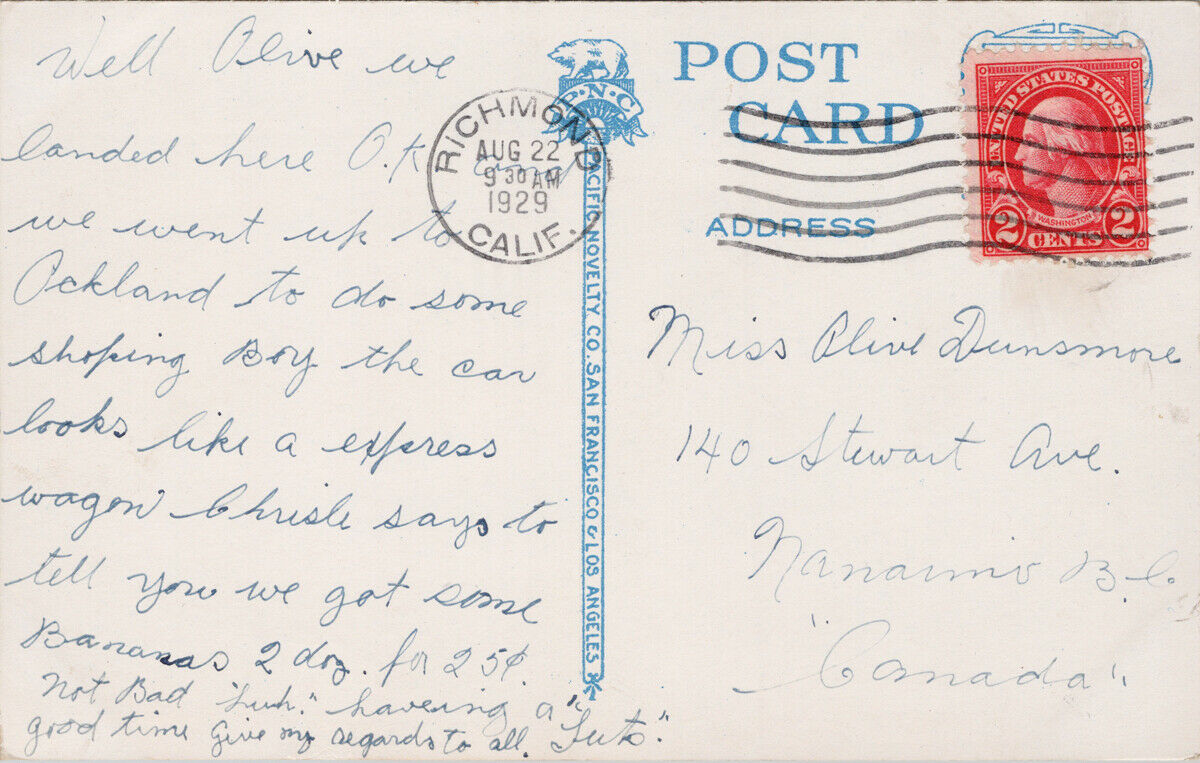 Well Olive we
landed here O.K and
we went up to
Ockland to do some
shoping Boy the car
looks like a express
wagon Chrisle says to
tell you we got some
Bananas 2 doz. for 25¢.
Not Bad "huh." haveing a
good time Give my regards to all.
P.N.C
PACIFIC NOVELTY CO. SAN FRANCISCO & LOS ANGELES
RICHMOND
AUG 22
9 30 AM
1929
CALIF.
POST
CARD
ADDRESS
UNITED STATES POSTAGE
WASHINGTON
2 CENTS 2
Miss Olive Dunsmore
140 Stewart Ave.
Nanaimo B.C.
"Canada"